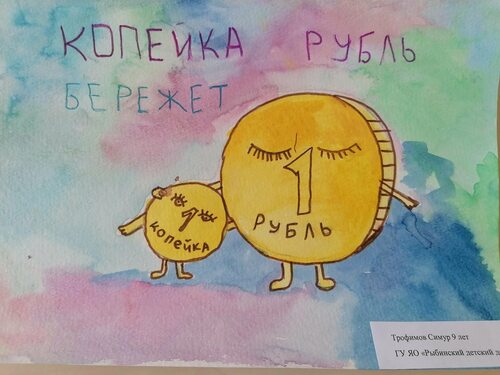 КОПЕЙКА РУБЛЬ
БЕРЕЖЕТ
1
РУБЛЬ
1
КОПЕЙКА
Трофимов Симур 9 лет
ГУ ЯО «Рыбинский детский